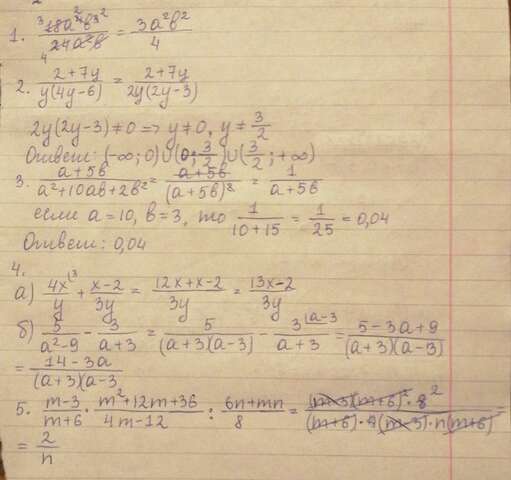 1. 18a⁴b³/24a²b = 3a²b²/4
2. 2+7y/y(4y-6) = 2+7y/2y(2y-3)
2y(2y-3)≠0 => y≠0, y≠3/2
Ответ: (-∞;0)∪(0;3/2)∪(3/2;+∞)
3. a+5b/a²+10ab+2b² = a+5b/(a+5b)² = 1/a+5b
если a=10, b=3, то 1/10+15 = 1/25 = 0,04
Ответ: 0,04
4.
а) 4x⁽³/y + x-2/3y = 12x+x-2/3y = 13x-2/3y
б) 5/a²-9 - 3/a+3 = 5/(a+3)(a-3) - 3⁽ᵃ⁻³/a+3 = 5-3a+9/(a+3)(a-3)
= 14-3a/(a+3)(a-3
5. m-3/m+6 · m²+12m+36/4m-12 : 6n+mn/8 = (m-3)(m+6)²·8 2/(m+6)·4(m-3)·n(m+6) =
= 2/n